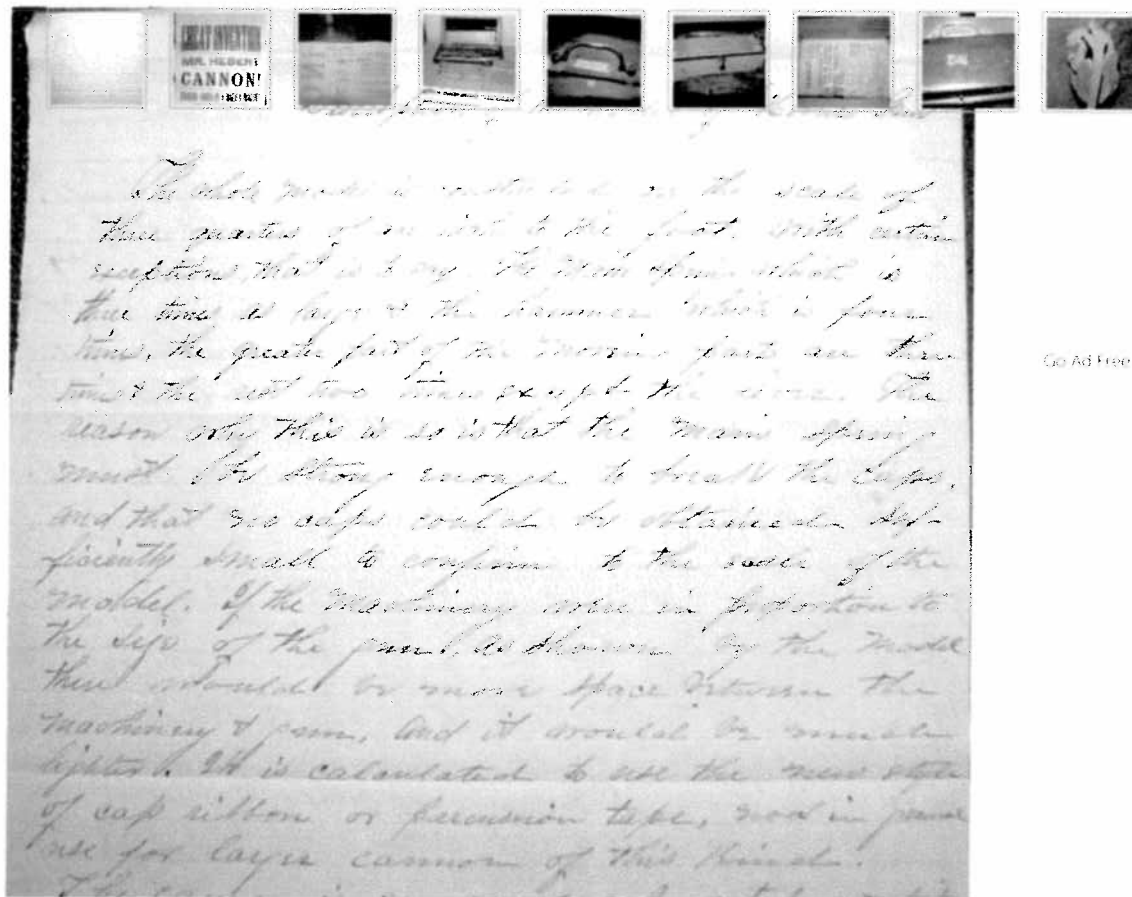 GREAT INVENTION
MR. HEBERT
CANNON!
The whole model is constructed on the scale of
three quarters of an inch to the foot. With certain
exceptions, that is to say. The main spring which is
three times as large as the hammer which is four
times, the greater part of the moving parts are three
times the rest two times except the The
reason why this is so is that the main spring
must be strong enough to break the caps,
and that no caps could be obtained suf-
ficiently small to conform to the scale of the
model. If the machinery were in proportion to
the size of the gun, as shown by the model
there would be more space between the
machinery & gun, and it would be much
lighter. It is calculated to use the new style
of cap ribbon or percussion tape, now in general
use for larger cannon of this kind.
Go Ad Free